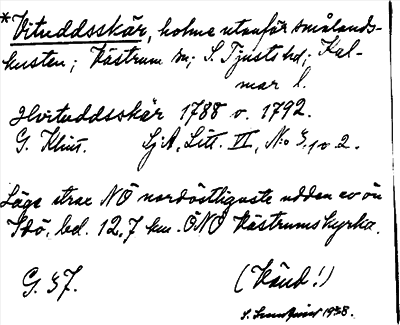 *Vituddsskär, holme utanför Smålands-
kusten; Västrum sn; S. Tjusts hd; Kal-
mar l.
Hvituddsskär 1788 o. 1792.
G. Klint. SjA, Litt. VI, No 3, 1 o 2.
Läge strax NÖ nordöstligaste udden av ön
Idö, bel. 12,7 km. ONO Västrums kyrka.
G. 37. (Känd!)
S. 1938.